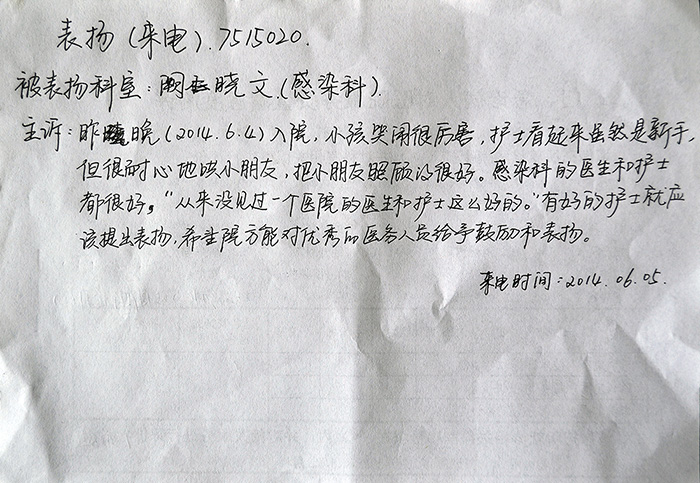 表扬(来电).7515020.
被表扬科室:晓文.(感染科).
主诉:昨晚(2014.6.4)入院,小孩哭闹很厉害,护士看起来虽然是新手,
但很耐心地哄小朋友,把小朋友照顾得很好。感染科的医生和护士
都很好。“从来没见过一个医院的医生和护士这么好的。”有好的护士就应
该提出表扬,希望院方能对优秀的医务人员给予鼓励和表扬。
来电时间:2014.06.05.